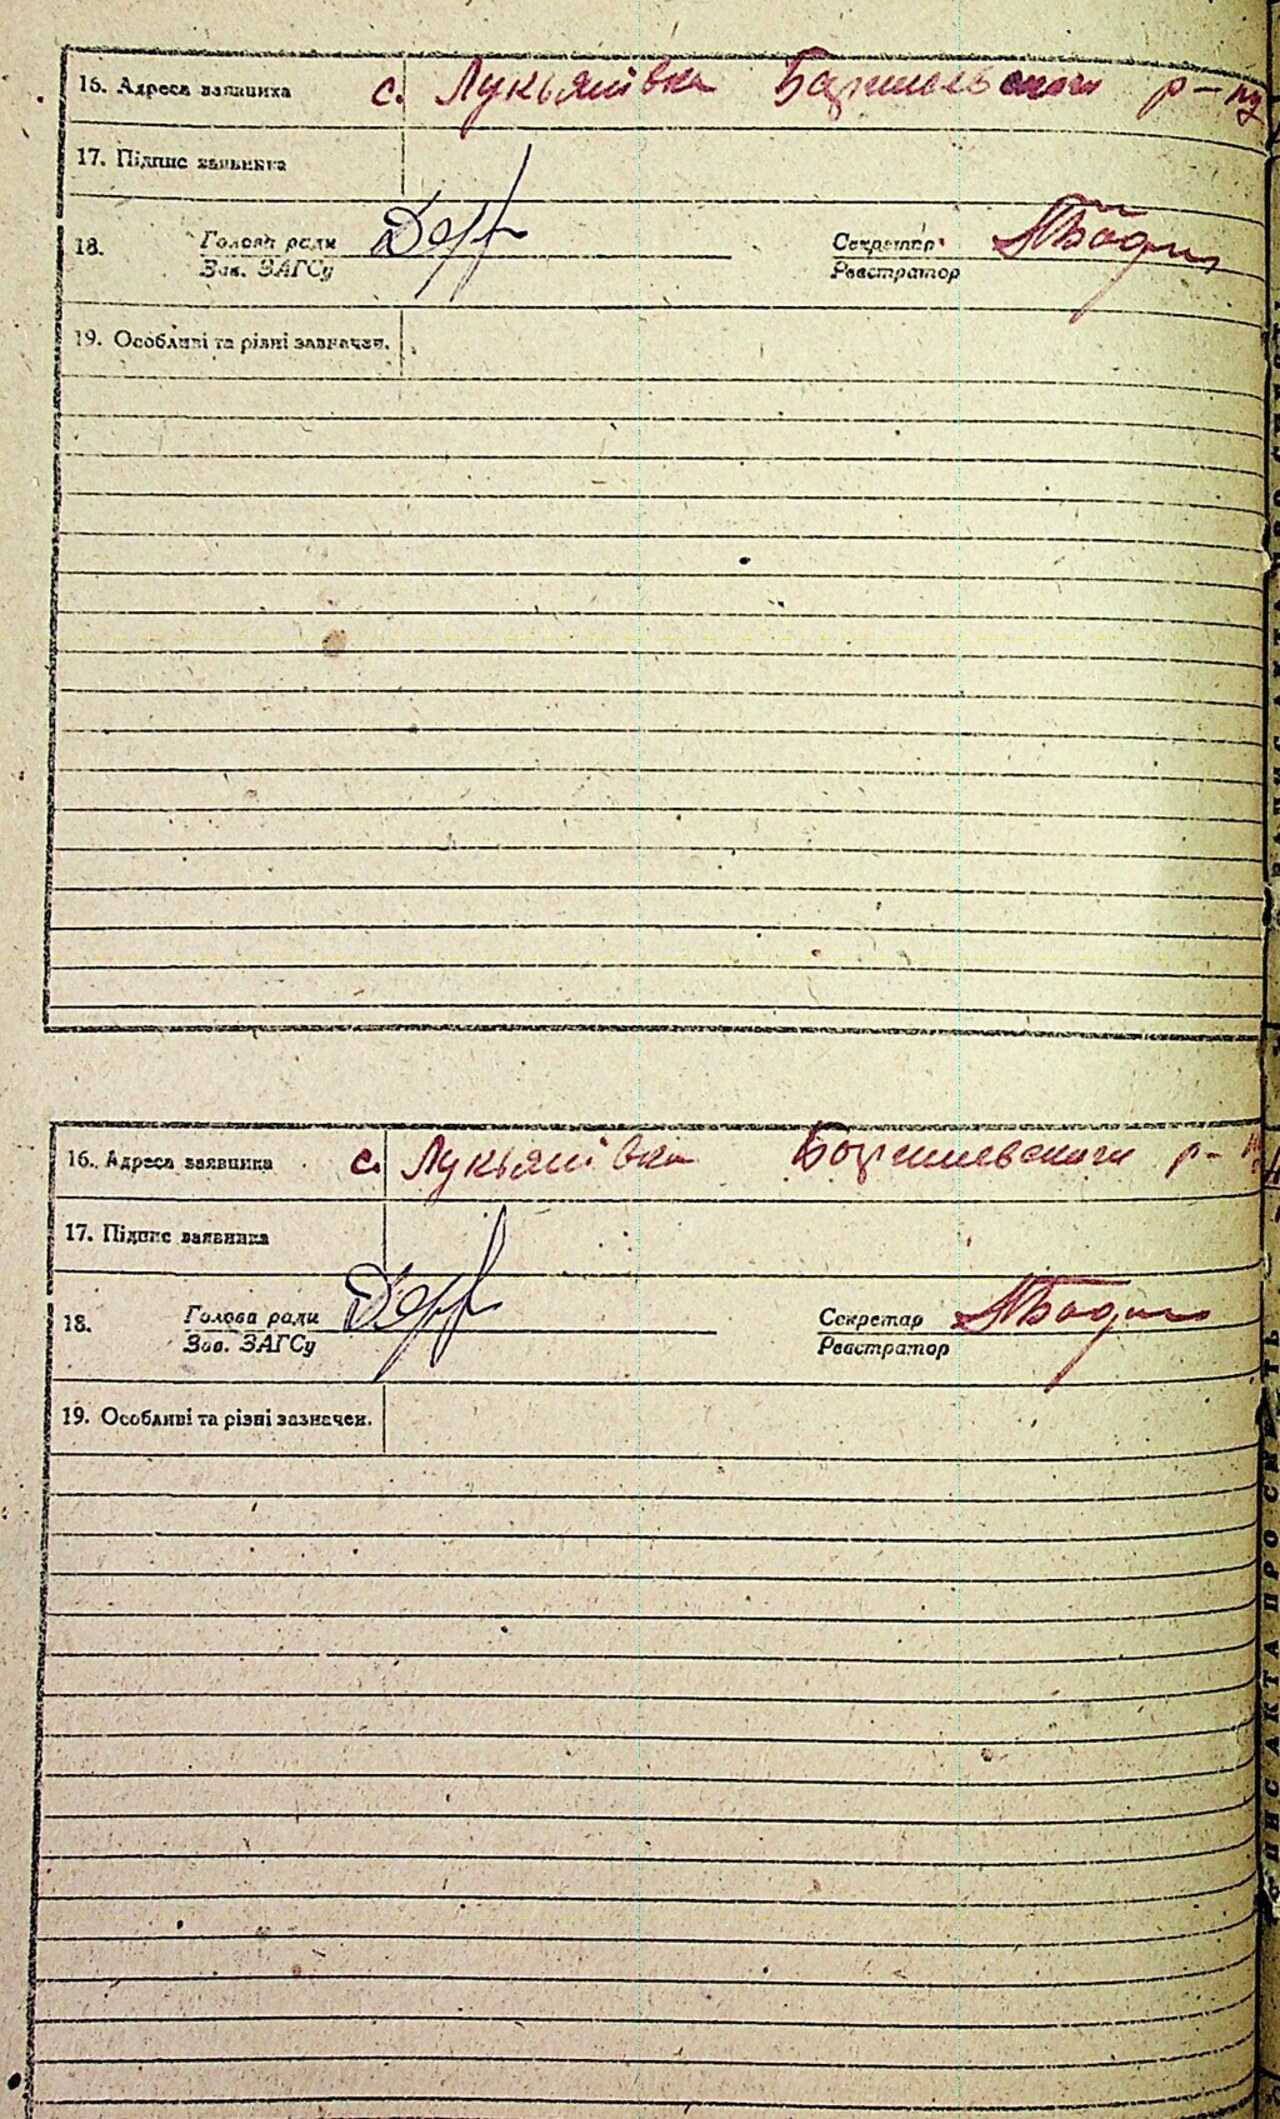 16. Адреса заявника с. Лукьянівка Баришевского р-ну
17. Підпис заявника
18. Голова ради Секретар
Зав. ЗАГСу Реєстратор
19. Особливі та різні зазначен.
16. Адреса заявника с. Лукьянівка Баришевского р-н
17. Підпис заявника
18. Голова ради Секретар
Зав. ЗАГСу Реєстратор
19. Особливі та різні зазначен.